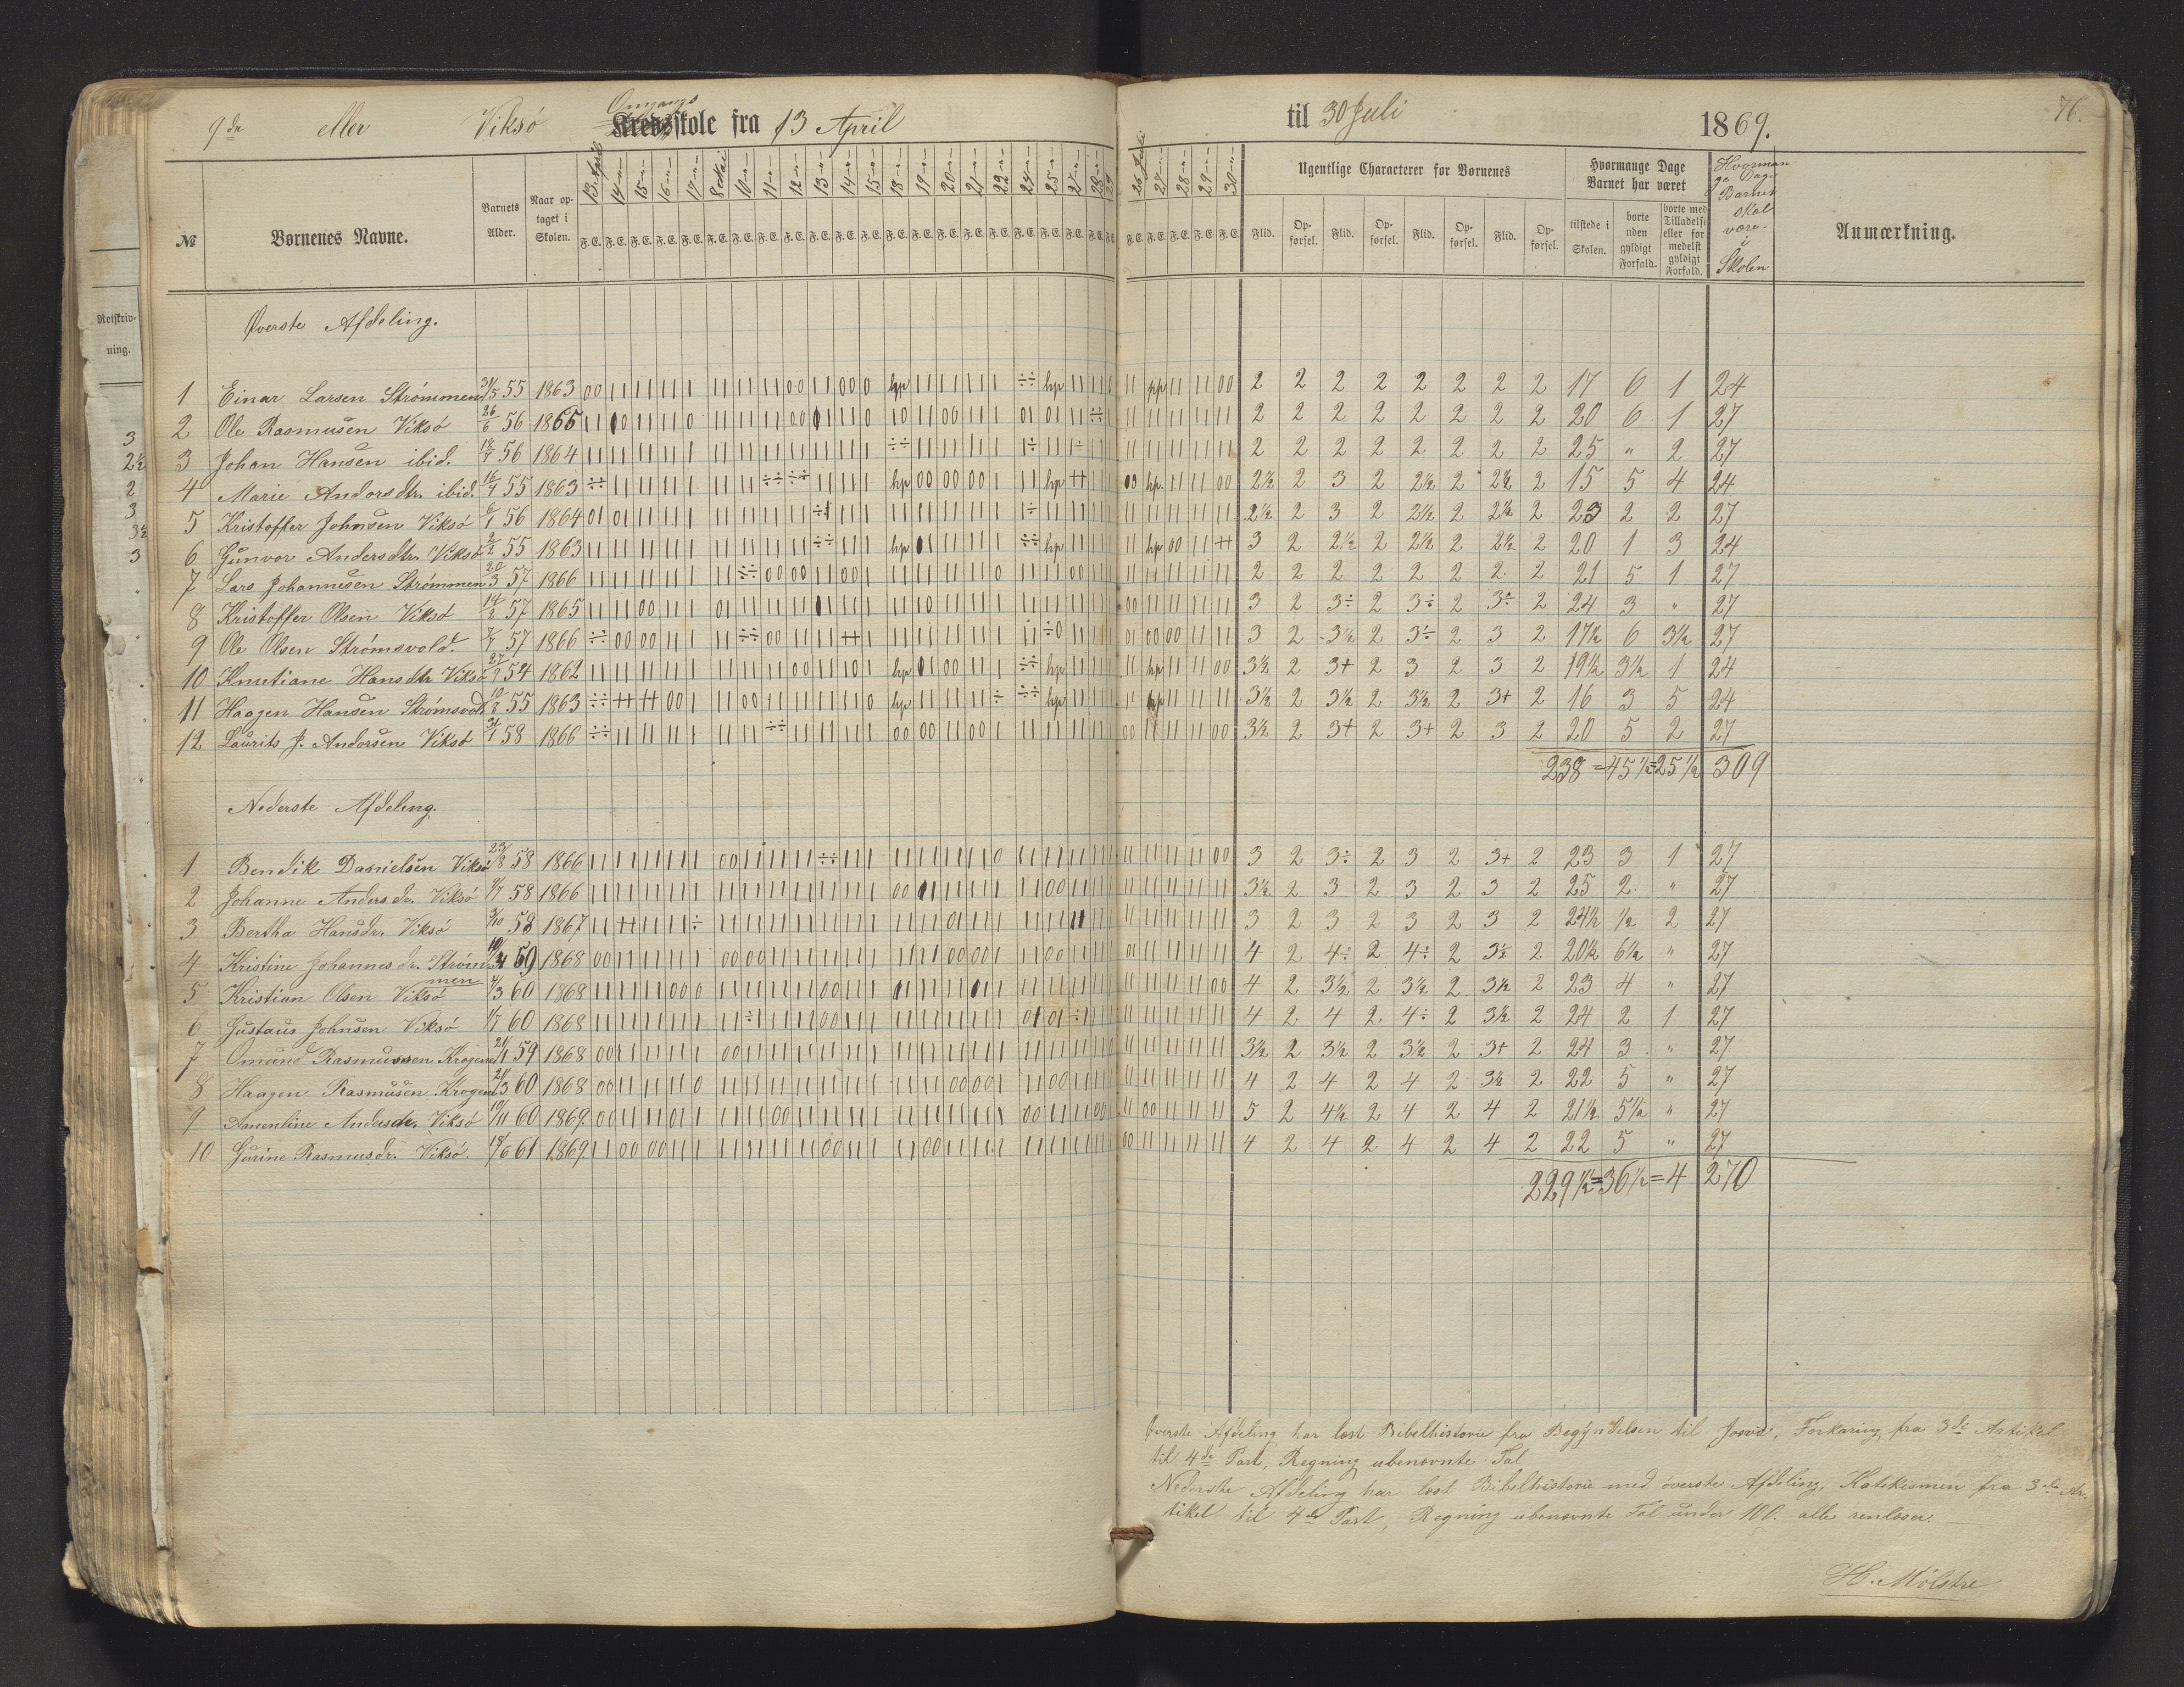 9de eller Viksö Omgangs Kredsskole fra 13 April til 30 Juli 1869. 76.
№ Børnenes Navne. Barnets Alder. Naar optaget i Skolen. Ugentlige Characterer for Børnenes Hvormange Dage Barnet har været Hvormange Dage Barnet skal være i Skolen Anmærkning.
13 April 14 15 16 17 8 Mai 10 11 12 13 14 15 18 19 20 21 22 24 25 27 28 29 26 Juli 27 28 29 30
F. E. Flid. Opførsel. Flid. Opførsel. Flid. Opførsel. Flid. Opførsel. tilstede i Skolen. borte uden gyldigt Forfald. borte med Tilladelse eller formedelst gyldigt Forfald.
Retskrivning.
Øverste Afdeling.
1 Einar Larsen Strømmen 31/5 55 1863 2 2 2 2 2 2 2 2 17 6 1 24
2 Ole Rasmusen Viksö 26/6 56 1865 2 2 2 2 2 2 2 2 20 6 1 27
3 Johan Hansen ibid. 18/7 56 1864 2 2 2 2 2 2 2 2 25 " 2 27
4 Marie Andersdtr. ibid. 16/4 55 1863 2½ 2 3 2 2½ 2 2½ 2 15 5 4 24
5 Kristoffer Johnsen Viksö 6/1 56 1864 2½ 2 3 2 2½ 2 2½ 2 23 2 2 27
6 Gunvor Andersdtr. Viksö 2/2 55 1863 3 2 2½ 2 2½ 2 2½ 2 20 1 3 24
7 Lars Johannesen Strømmen 20/3 57 1866 2 2 2 2 2 2 2 2 21 5 1 27
8 Kristoffer Olsen Viksö 14/2 57 1865 3 2 3÷ 2 3÷ 2 3÷ 2 24 3 " 27
9 Ole Olsen Strømsvold. 57 1866 3 2 3½ 2 3÷ 2 3 2 17½ 6 3½ 27
10 Hansdtr Viksö 54 1862 3½ 2 3+ 2 3 2 3 2 19½ 3½ 1 24
11 Haagen Hansen Strømsvold 10/8 55 1863 3½ 2 3½ 2 3½ 2 3+ 2 16 3 5 24
12 Laurits J. Andersen Viksö 31/1 58 1866 3½ 2 3+ 2 3+ 2 3 2 20 5 2 27
238 = 45½ = 25½ 309
Nederste Afdeling.
1 Bendik Danielsen Viksö 23/8 58 1866 3 2 3÷ 2 3 2 3+ 2 23 3 1 27
2 Johanne Andersdr. Viksö 58 1866 3½ 2 3 2 3 2 3 2 25 2 " 27
3 Bertha Hansdr. Viksö 58 1867 3 2 3 2 3 2 3 2 24½ ½ 2 27
4 Kristine Johannesdr. Strømmen 59 1868 4 2 4÷ 2 4÷ 2 3½ 2 20½ 6½ " 27
5 Kristian Olsen Viksö 4/3 60 1868 4 2 3½ 2 3½ 2 3½ 2 23 4 " 27
6 Gustaus Johnsen Viksö 60 1868 4 2 4 2 4÷ 2 3½ 2 24 2 1 27
7 Omund Rasmussen Krogene 21/1 59 1868 3½ 2 3½ 2 3½ 2 3+ 2 24 3 " 27
8 Haagen Rasmusen Krogene 21/3 60 1868 4 2 4 2 4 2 3½ 2 22 5 " 27
9 Anenline Andersdr. Viksö 19/11 60 1869. 5 2 4½ 2 4 2 4 2 21½ 5½ " 27
10 Gurine Rasmusdr. Viksö. 18/6 61 1869 4 2 4 2 4 2 4 2 22 5 " 27
229½ = 36½ = 4 270
Øverste Afdeling har læst Bibelhistorie fra Begyndelsen til Josva, Forklaring fra 3de Artikel
til 4de Part, Regning ubenævnte Tal
Nederste Afdeling har læst Bibelhistorie med øverste Afdeling, Katekismen fra 3die Ar-
tikel til 4de Part, Regning ubenævnte Tal under 100. alle renlæser.
H. Mölstre